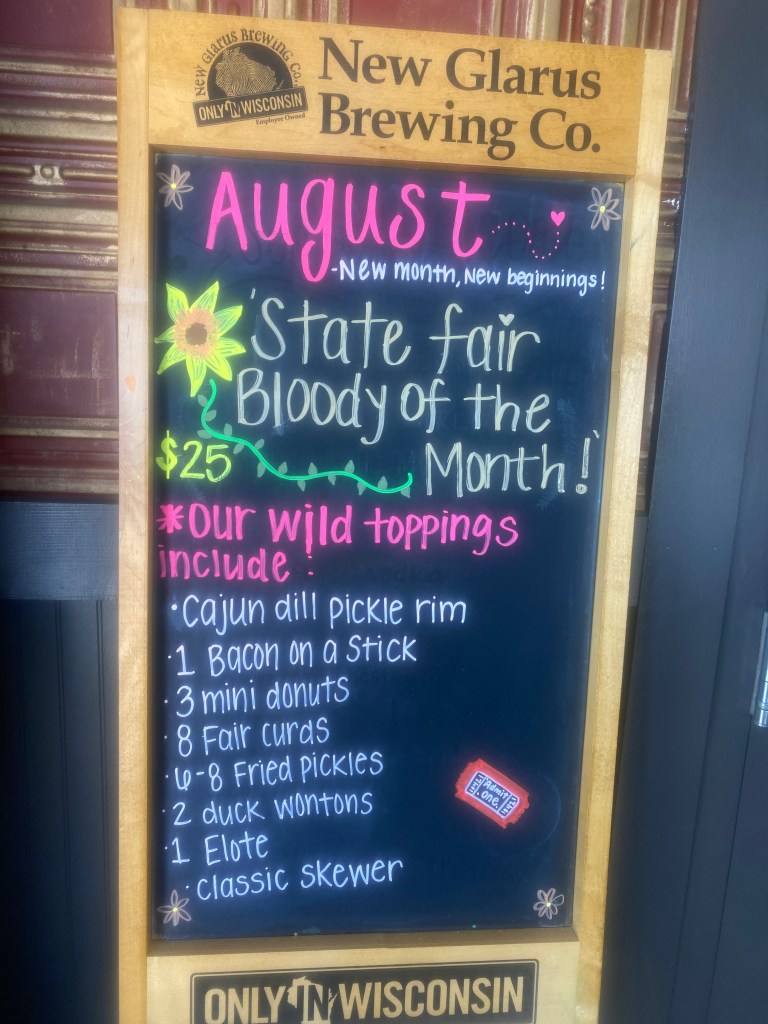 New Glarus Brewing Co.
ONLY IN WISCONSIN
Employee Owned
New Glarus
Brewing Co.
August
-New month, New beginnings!
'State fair
Bloody of the
$25
Month!'
*Our wild toppings
include!
·Cajun dill pickle rim
·1 Bacon on a stick
·3 mini donuts
·8 Fair curds
·6-8 Fried Pickles
·2 duck wontons
·1 Elote
·classic skewer
Admit
one.
ONLY IN WISCONSIN